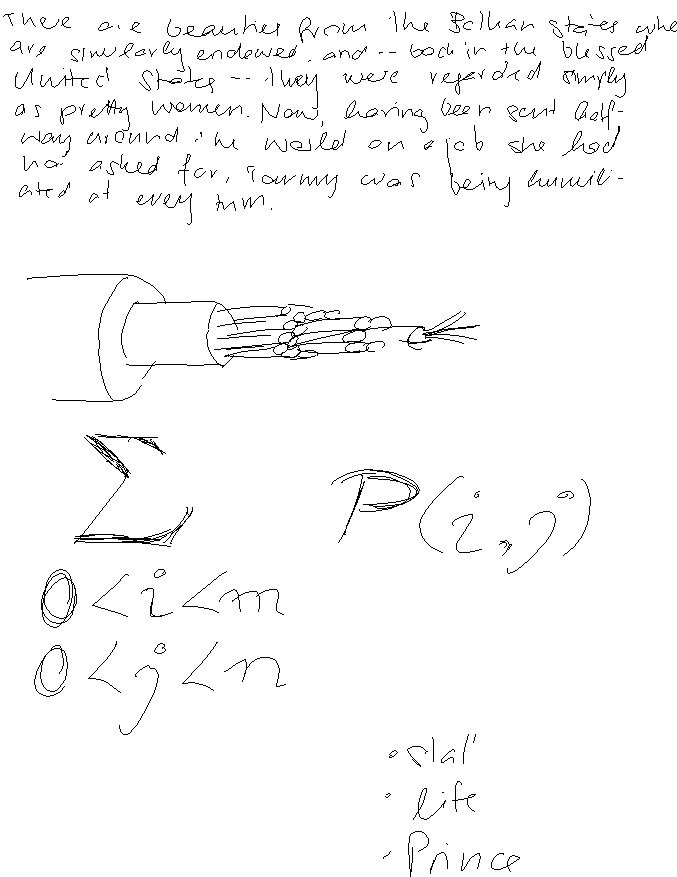 There are beauties from the Balkan States who
are similarly endowed, and -- back in the blessed
United States -- they were regarded simply
as pretty women. Now, having been sent half-
way around the world on a job she had
not asked for, Tammy was being humili-
ated at every turn.
∑ P(i,j)
0<i<m
0<j<n
• slat
• life
• Prince